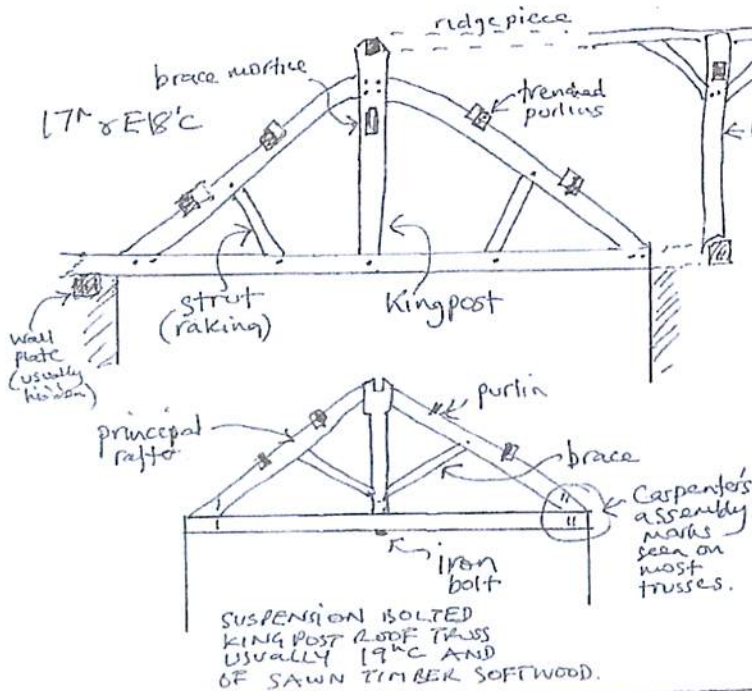 ridge piece
brace mortice
17th & E18th C
trenched
purlins
strut
(raking)
Kingpost
wall
plate
(usually
hidden)
principal
rafter
purlin
brace
Carpenter's
assembly
marks
seen on
most
trusses.
iron
bolt
SUSPENSION BOLTED
KING POST ROOF TRUSS
USUALLY 19thC AND
OF SAWN TIMBER SOFTWOOD.